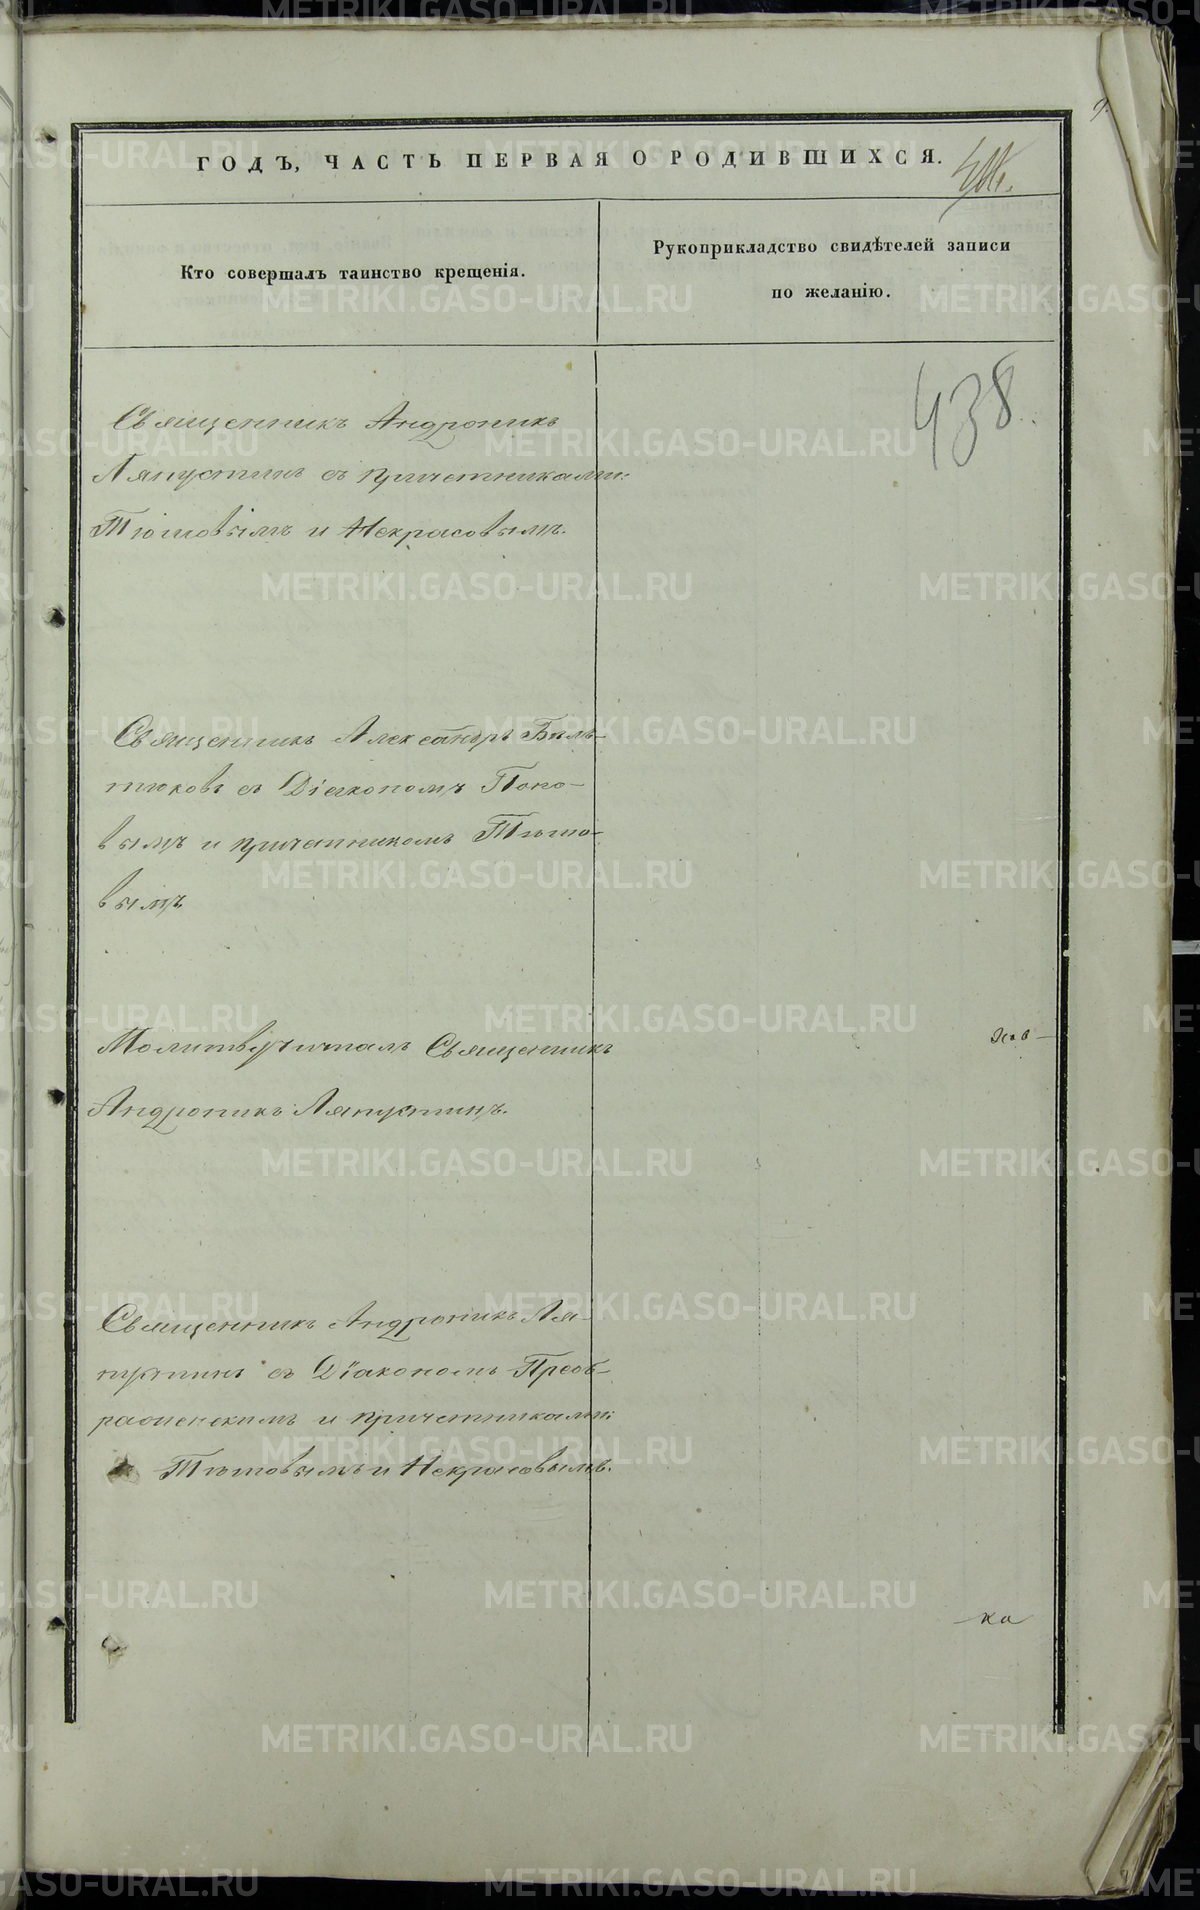 ГОДЪ, ЧАСТЬ ПЕРВАЯ О РОДИВШИХСЯ.
Кто совершалъ таинство крещенія.
Рукоприкладство свидѣтелей записи
по желанію.
438.
Священникъ Андроникъ
Ляпустинъ съ причетниками:
Тютовымъ и Некрасовымъ.
Священникъ Александръ
съ Діакономъ Попо-
вымъ и причетникомъ Тюто-
вымъ
Молитву читалъ Священникъ
Андроникъ Ляпустинъ.
Священникъ Андроникъ Ля-
пустинъ съ Діакономъ Преоб-
раженскимъ и причетниками:
Тютовымъ и Некрасовымъ.
ка
METRIKI.GASO-URAL.RU